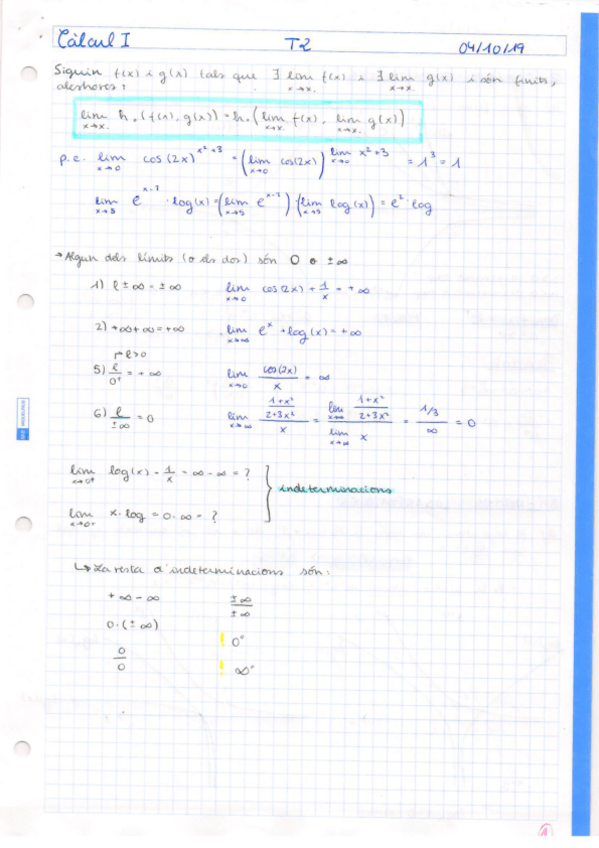 Càlcul I T2 04/10/19
Siguin f(x) i g(x) tals que ∃ lim x→x. f(x) i ∃ lim x→x. g(x) i són finits,
aleshores:
lim x→x. h.(f(x), g(x)) = h.(lim x→x. f(x), lim x→x. g(x))
p.e. lim x→0 cos(2x)^(x²+3) = (lim x→0 cos(2x))^(lim x→0 x²+3) = 1³ = 1
lim x→5 e^(x-3) · log(x) = (lim x→5 e^(x-3)) · (lim x→5 log(x)) = e² · log
→ Algun dels límits (o els dos) són 0 o ±∞
1) ℓ ± ∞ = ± ∞ lim x→0 cos(2x) + 1/x = +∞
2) +∞+∞ = +∞ lim x→∞ e^x + log(x) = +∞
ℓ>0
5) ℓ/0⁺ = +∞ lim x→0 cos(2x)/x = ∞
6) ℓ/±∞ = 0 lim x→∞ ((1+x²)/(2+3x²))/x = (lim x→∞ (1+x²)/(2+3x²))/(lim x→∞ x) = (1/3)/∞ = 0
lim x→0⁺ log(x) - 1/x = ∞ - ∞ = ?
indeterminacions
lim x→0⁺ x·log = 0·∞ = ?
↳ La resta d'indeterminacions són:
+∞ -∞ ±∞/±∞
0·(±∞) ! 0°
0/0 ! ∞°
1